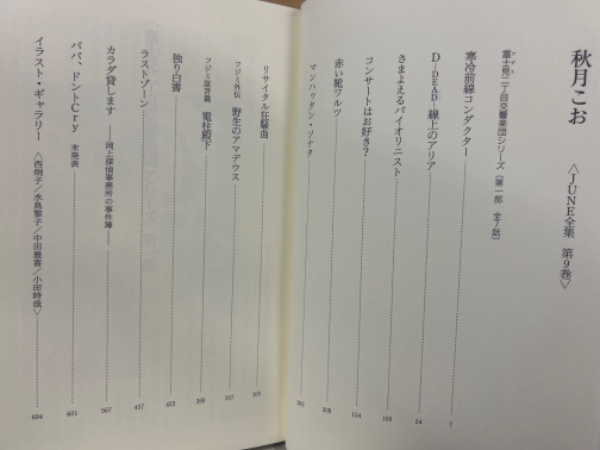 秋月こお
〈JUNE全集 第9巻〉
富士見二丁目交響楽団シリーズ〔第一部 全7話〕
寒冷前線コンダクター 7
D-DEAD-線上のアリア 54
さまよえるバイオリニスト 105
コンサートはお好き? 154
赤い靴ワルツ 208
マンハッタン・ソナタ
リサイタル狂騒曲 303
フジミ外伝 野生のアマデウス 357
電柱殿下 399
独り白書 423
ラストゾーン 457
カラダ貸します ――岡上探偵事務所の事件簿―― 567
パパ、ドントCry 未発表 601
イラスト・ギャラリー 〈西炯子/水鳥黎子/中田雅喜/小田時哉〉 604